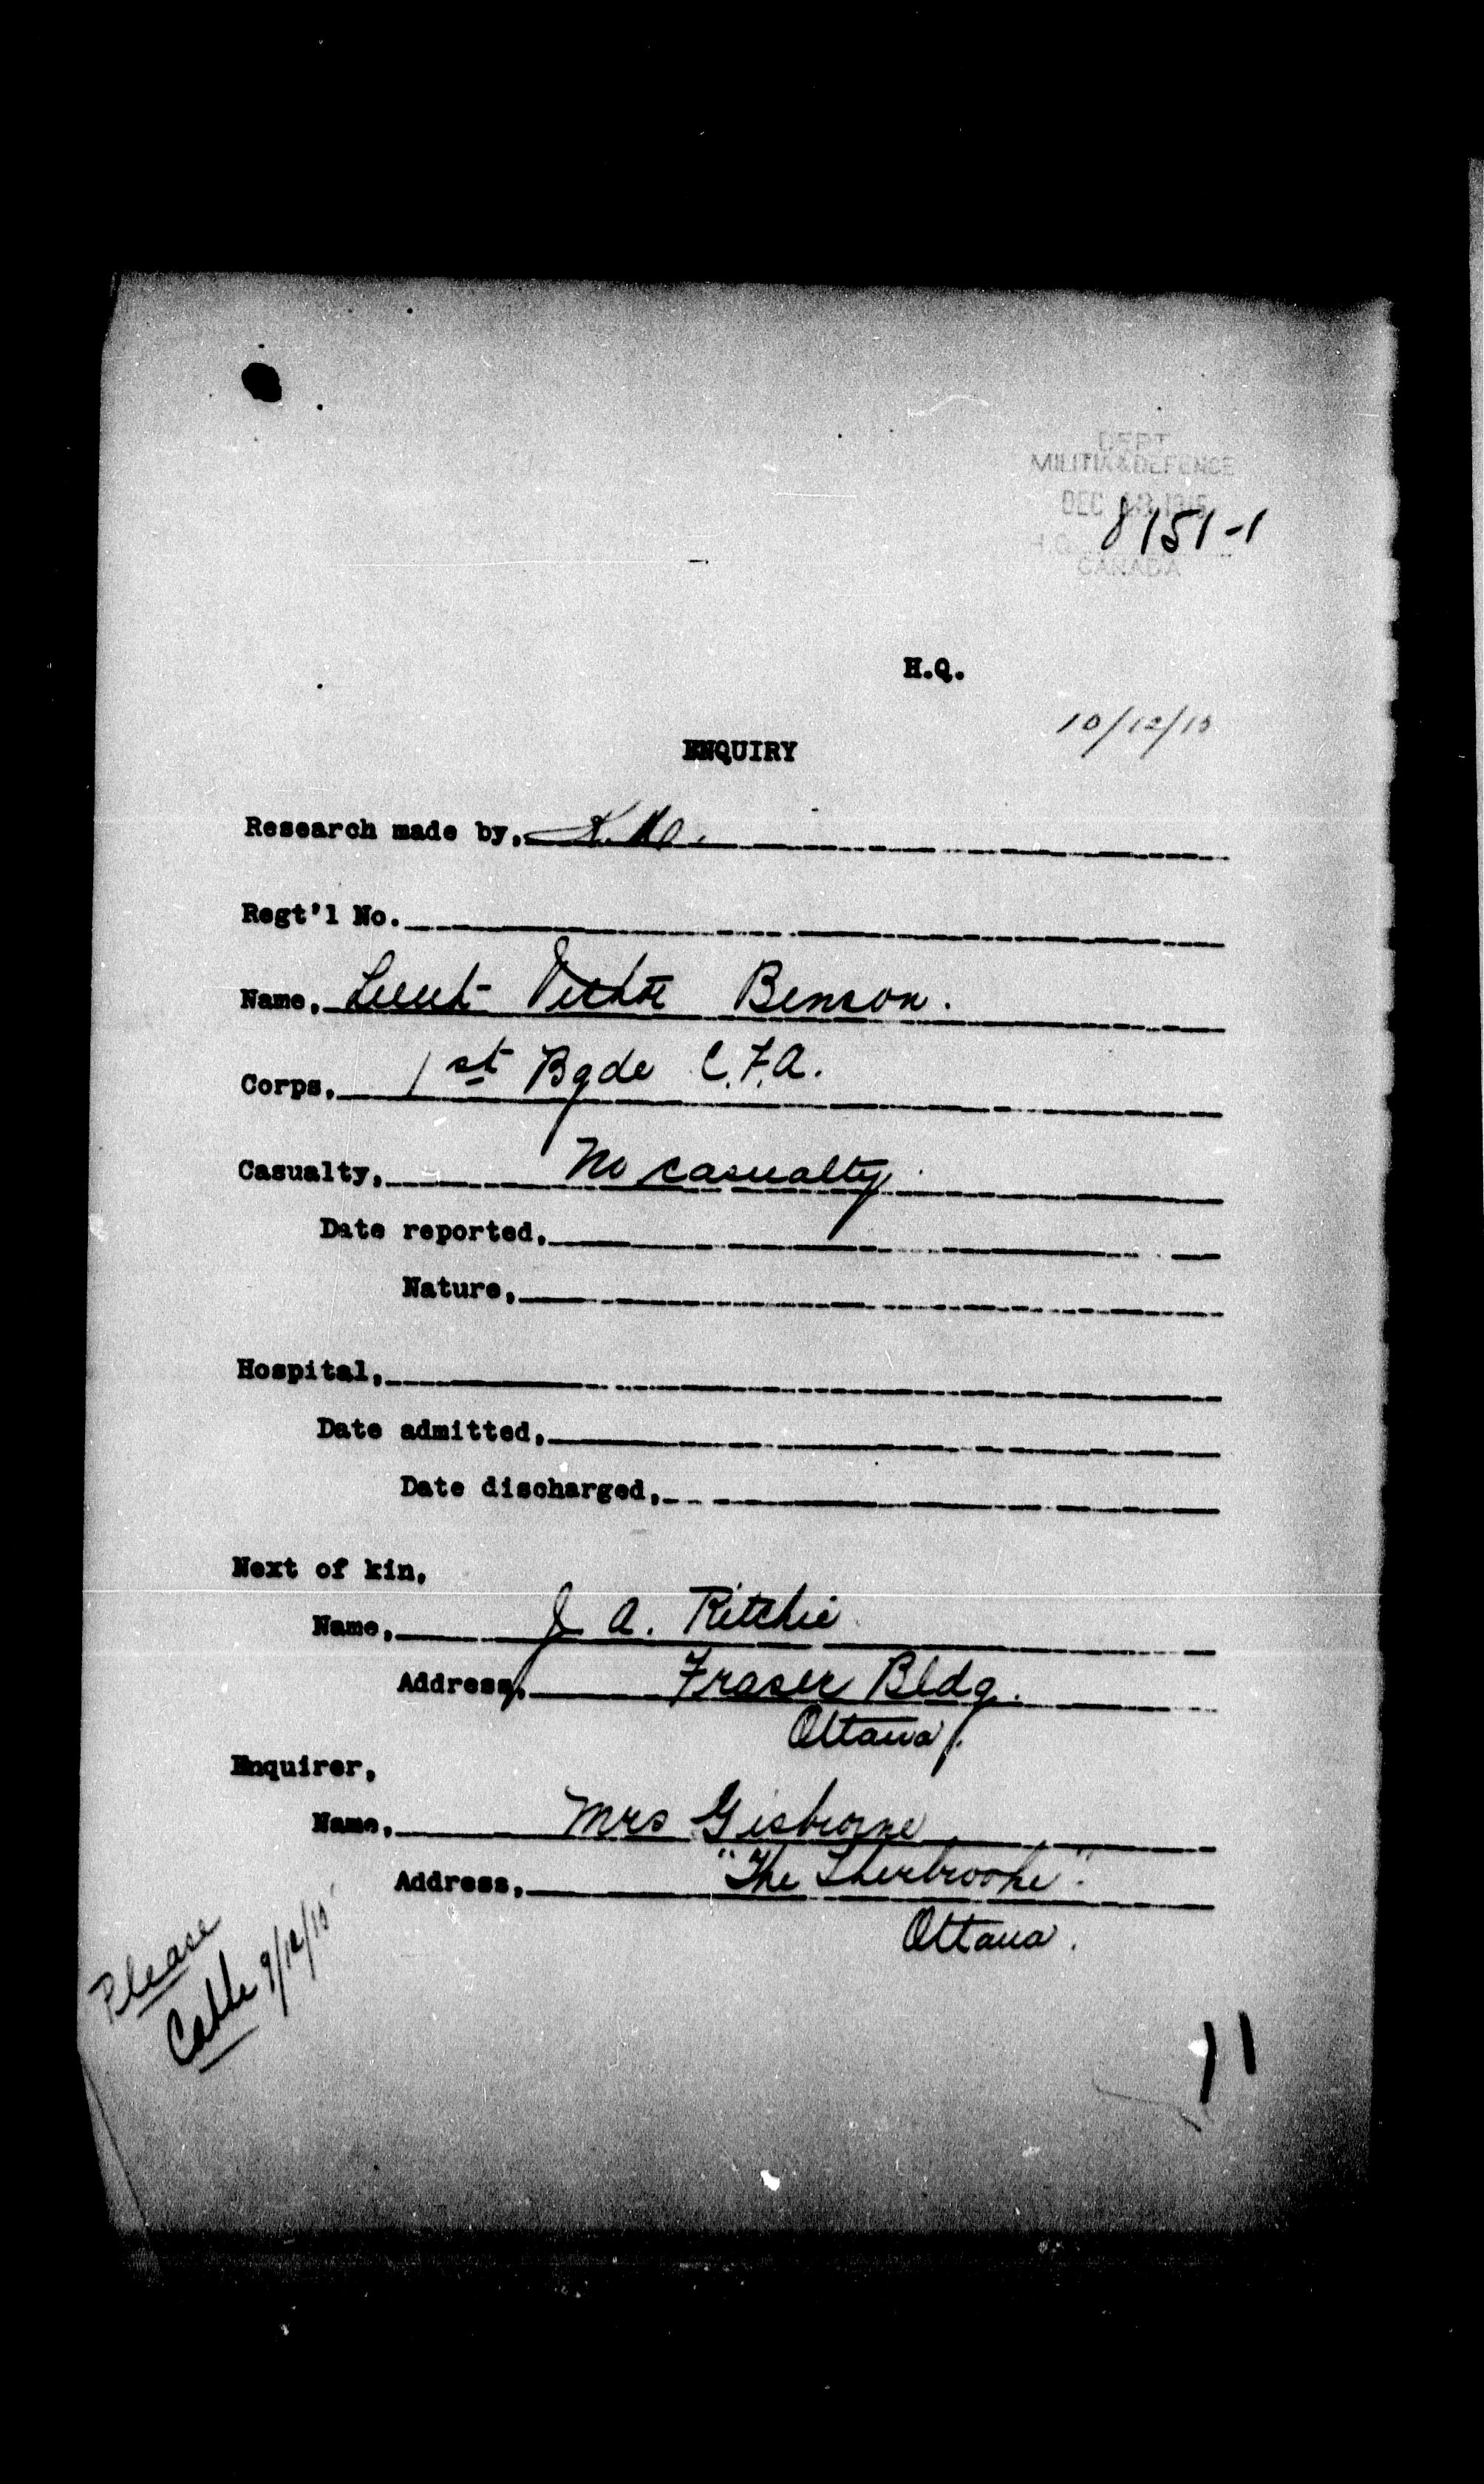 DEPT
MILITIA & DEFENCE
DEC 1915
8151-1
H.Q.
CANADA
H.Q.
10/12/15
ENQUIRY
Research made by,
Regt'l No.
Name, Lieut Victor Benson.
Corps, 1st Bgde C.F.A.
Casualty, No casualty
Date reported,
Nature,
Hospital,
Date admitted,
Date discharged,
Next of kin,
Name, J A. Ritchie
Address, Fraser Bldg.
Ottawa.
Enquirer,
Name, Mrs Gisborne
Address, "The Sherbrooke".
Ottawa.
Please
Cable 9/12/15
11